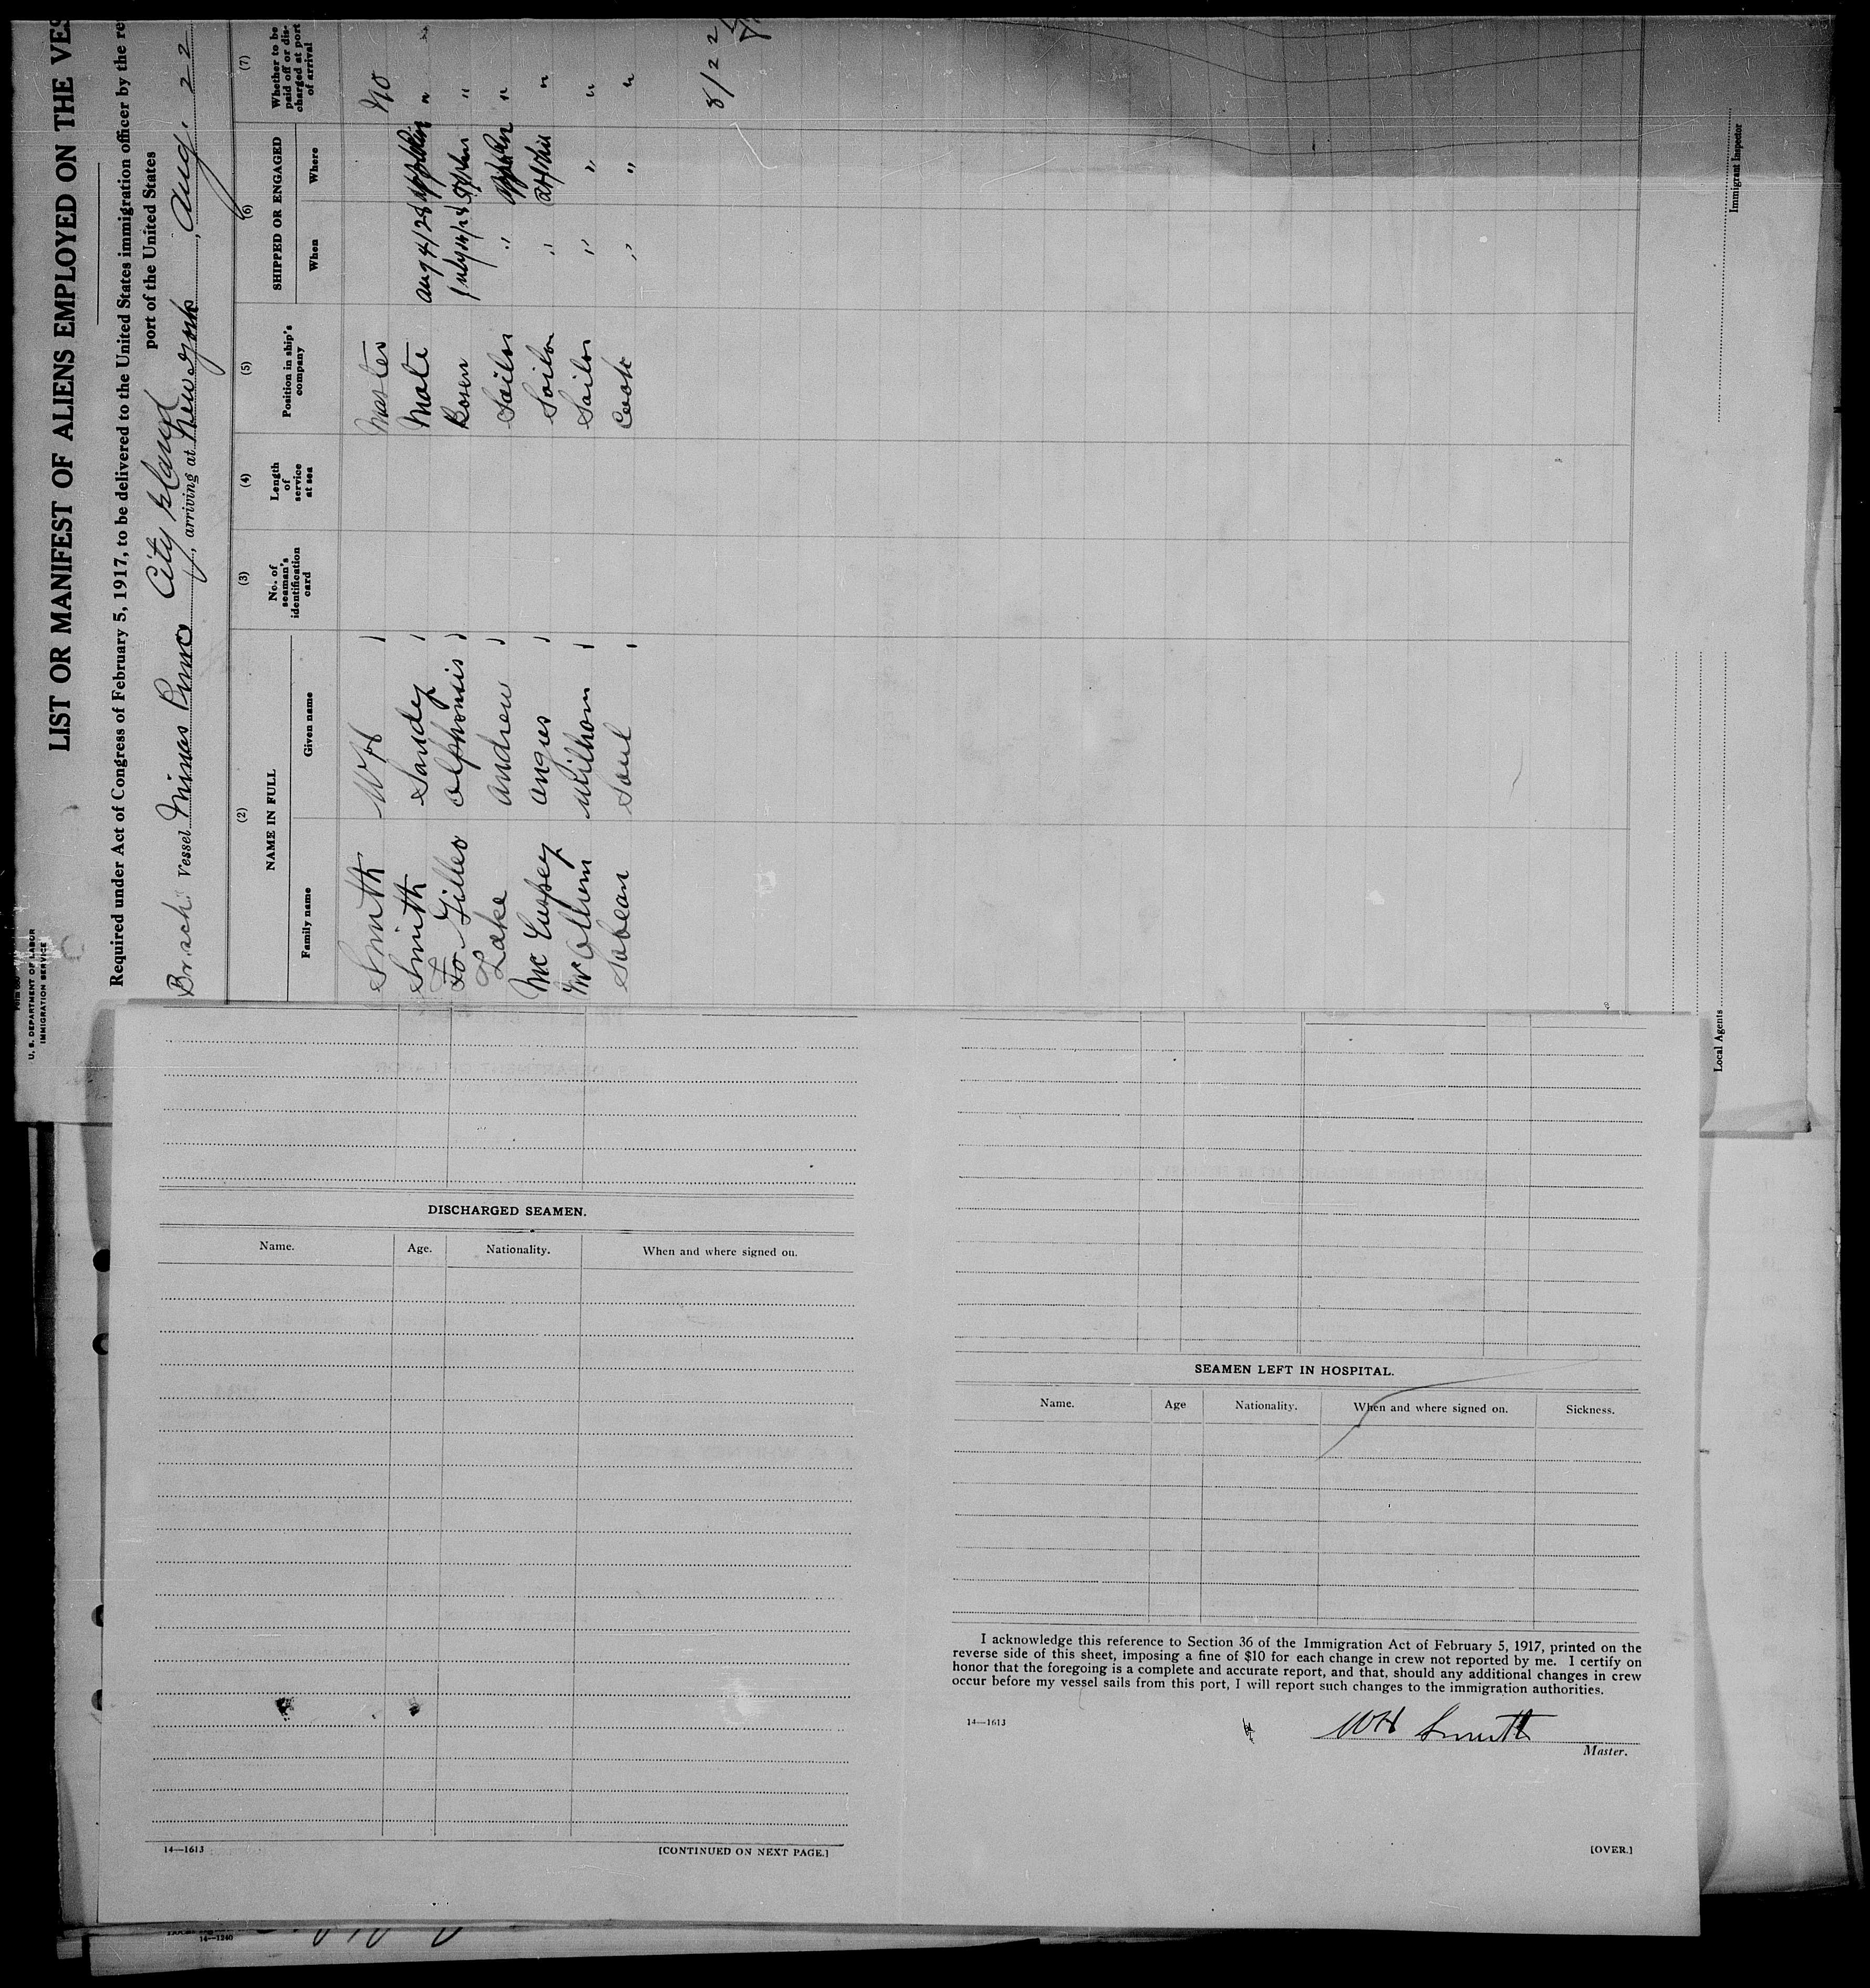 U. S. DEPARTMENT OF LABOR
IMMIGRATION SERVICE
LIST OR MANIFEST OF ALIENS EMPLOYED ON THE VES
Required under Act of Congress of February 5, 1917, to be delivered to the United States immigration officer by the re
port of the United States
City Island
Vessel Minas , arriving at New York , Aug. 22
(2) (3) (4) (5) (6) (7)
NAME IN FULL
Family name Given name
No. of seaman's identification card
Length of service at sea
Position in ship's company
SHIPPED OR ENGAGED
When Where
Whether to be paid off or discharged at port of arrival
Smith WH Master No
Smith Sandy Mate Aug 4/28 "
Bosen July "
Lake Andrew Sailor " "
Mc Angus Sailor " "
Sailor " " "
Sabean Saul Cook " " "
8/22
Immigrant Inspector
Local Agents
DISCHARGED SEAMEN.
Name. Age. Nationality. When and where signed on.
14—1613 [CONTINUED ON NEXT PAGE.]
SEAMEN LEFT IN HOSPITAL.
Name. Age Nationality. When and where signed on. Sickness.
I acknowledge this reference to Section 36 of the Immigration Act of February 5, 1917, printed on the
reverse side of this sheet, imposing a fine of $10 for each change in crew not reported by me. I certify on
honor that the foregoing is a complete and accurate report, and that, should any additional changes in crew
occur before my vessel sails from this port, I will report such changes to the immigration authorities.
14—1613
WH Smith
Master.
[OVER.]
14—1240